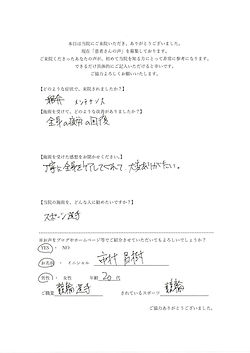 本日は当院にご来院いただき、ありがとうございました。
現在「患者さんの声」を募集しております。
ご来院くださったあなたの声が、初めて当院を知る方にとって非常に参考になります。
できるだけ具体的にご記入いただけると幸いです。
ご協力よろしくお願いいたします。
【どのような症状で、来院されましたか?】
疲労 メンテナンス
【施術を受けて、どのような改善がありましたか?】
全身の疲労の回復
【施術を受けた感想をお聞かせください。】
丁寧に全身をケアしてくれて、大変ありがたい。
【当院の施術を、どんな人に勧めたいですか?】
スポーツ選手
※お声をブログやホームページ等でご紹介させていただいてもよろしいでしょうか?
YES ・ NO
お名前 ・ イニシャル 市村 昌樹
男性 ・ 女性 年齢 20代
ご職業 競輪選手 されているスポーツ 競輪
ご協力ありがとうございました。